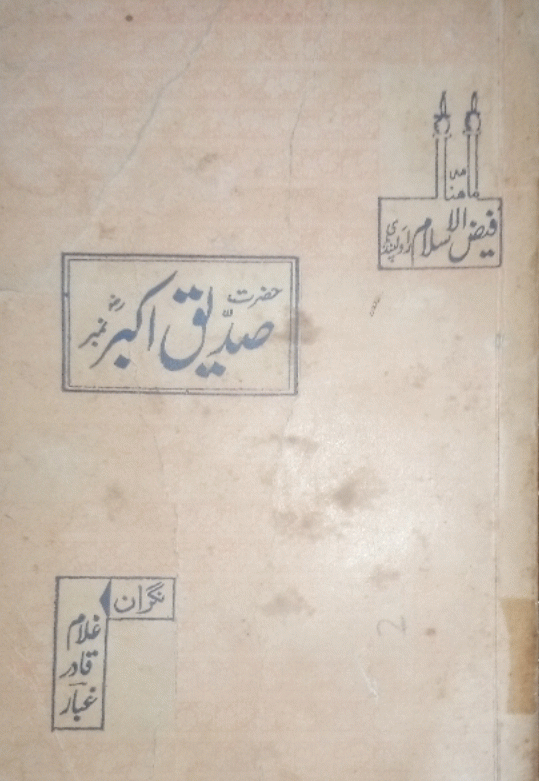 ماہنامہ
فیض الاسلام راولپنڈی
حضرت
صدیق اکبرؓ نمبر
نگران
غلام
قادر
غبار
2